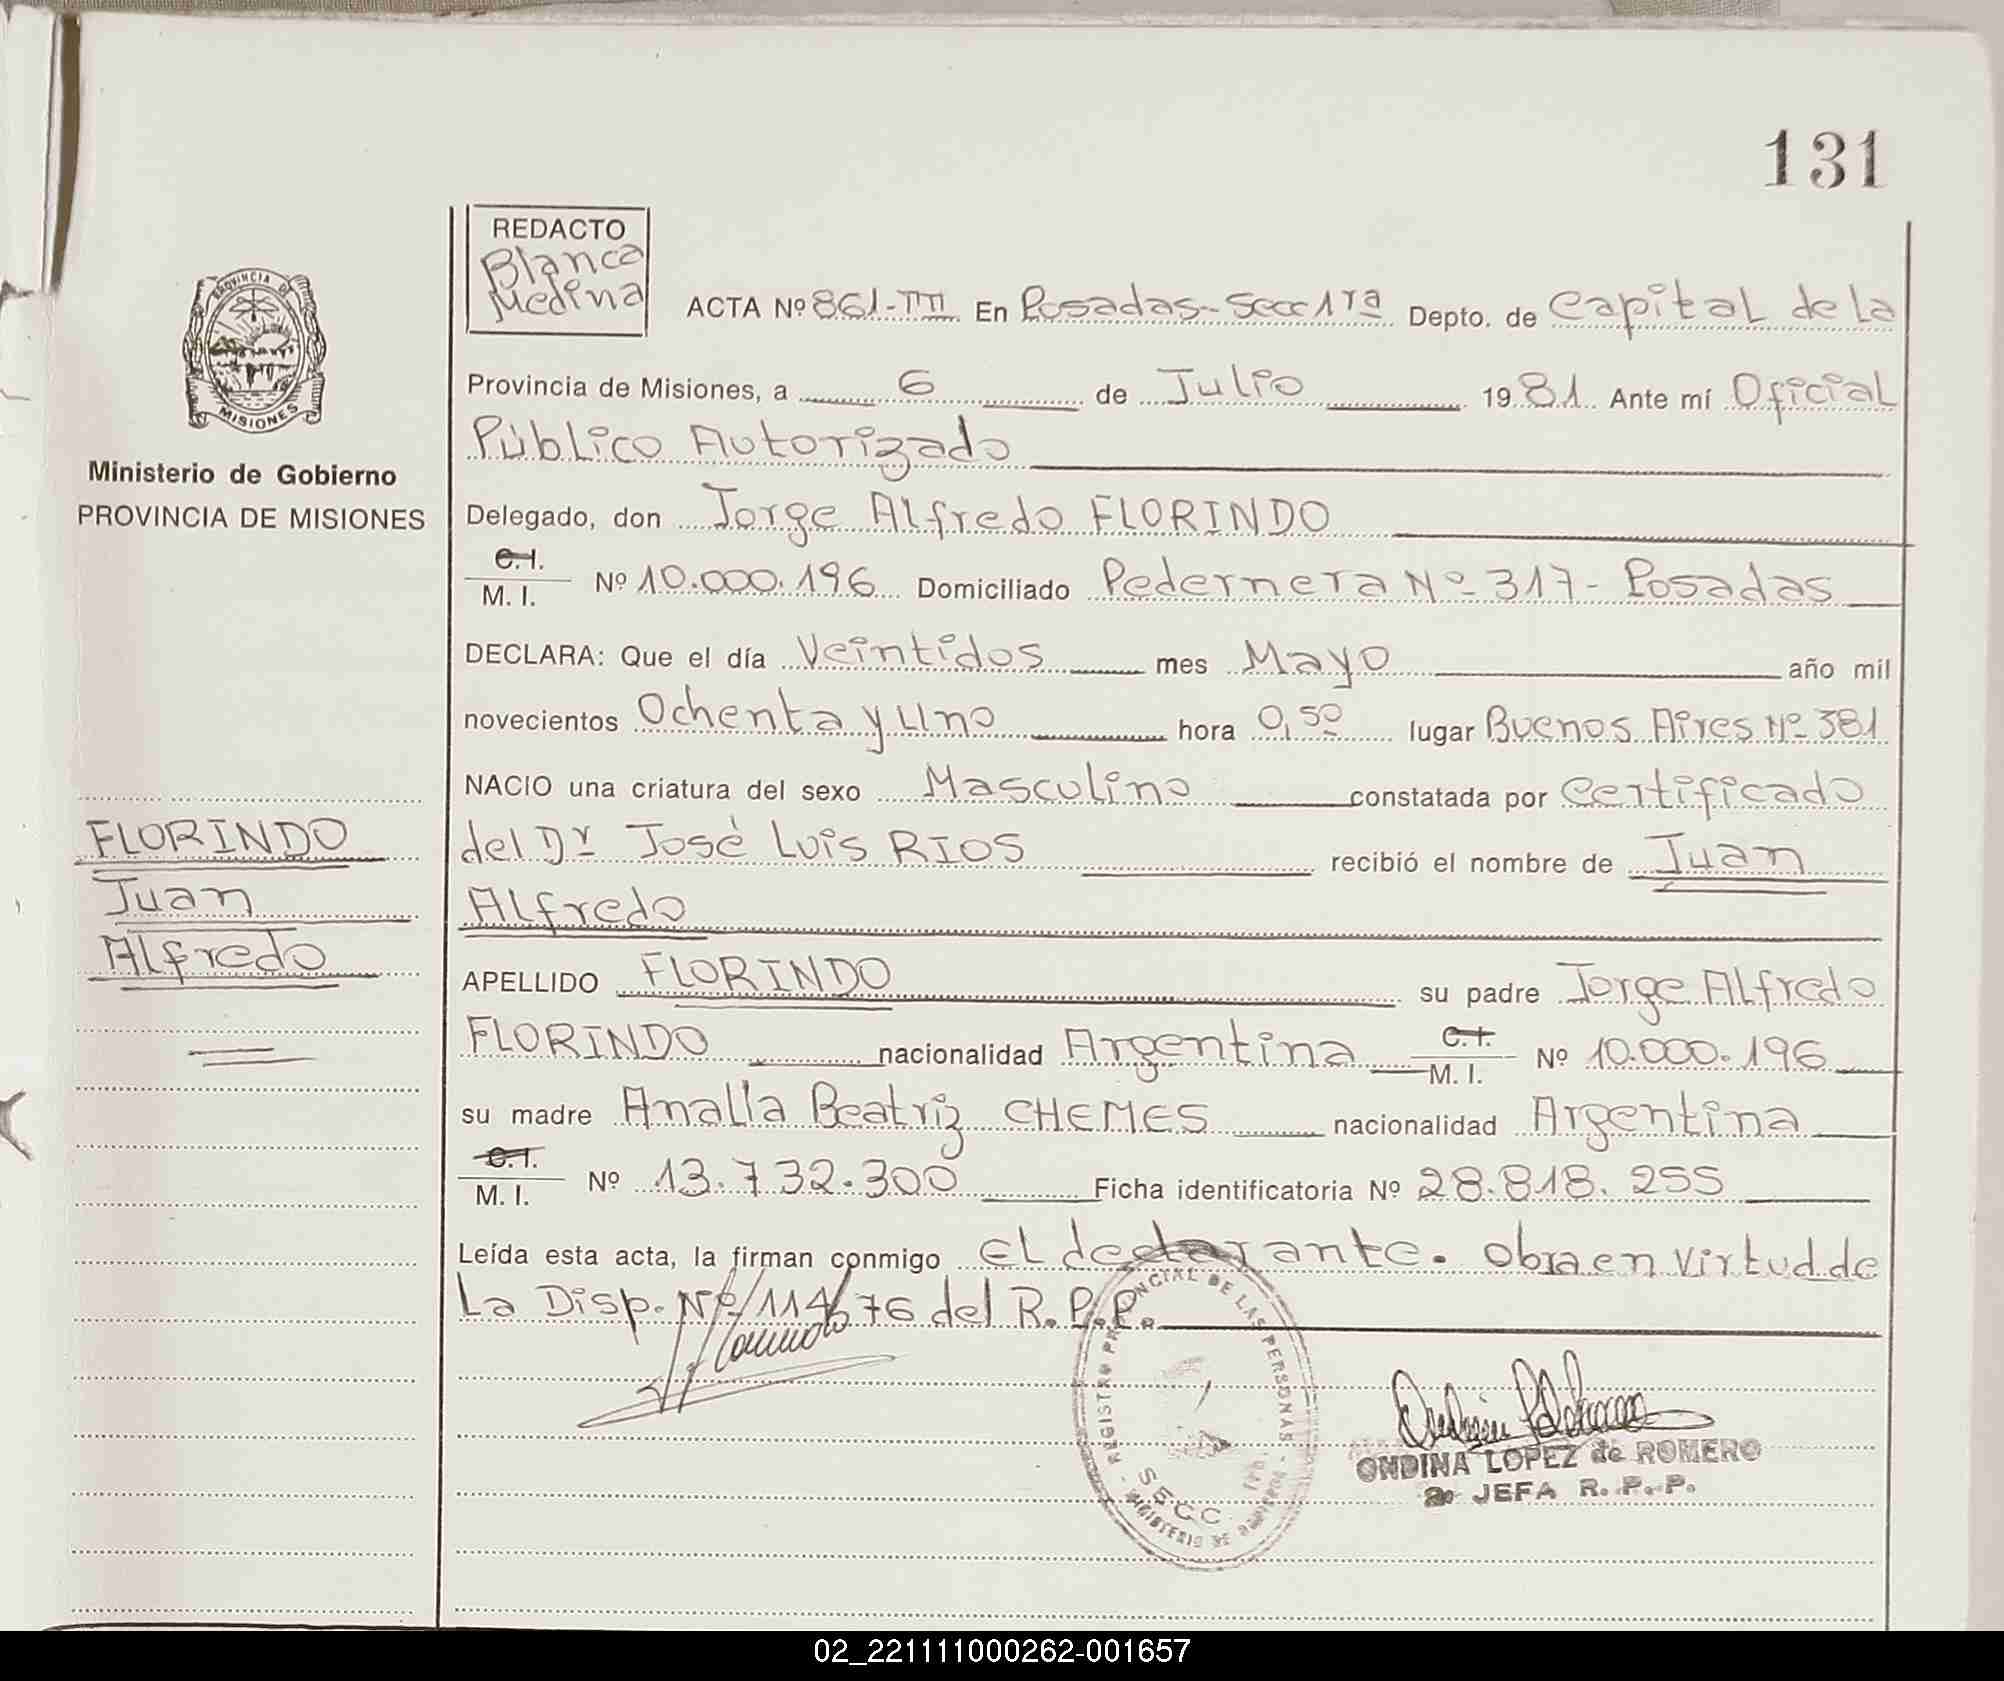 131
REDACTO
Blanca
Medina
ACTA Nº 861-TIII En Posadas-Secc 1ra Depto. de Capital de la
PROVINCIA DE
MISIONES
Provincia de Misiones, a 6 de Julio 1981 Ante mí Oficial
Público Autorizado
Ministerio de Gobierno
PROVINCIA DE MISIONES
Delegado, don Jorge Alfredo FLORINDO
C.I.
M. I. Nº 10.000.196 Domiciliado Pedernera Nº 317- Posadas
DECLARA: Que el día Veintidos mes Mayo año mil
novecientos Ochenta y Uno hora 0,50 lugar Buenos Aires Nº 381
NACIO una criatura del sexo Masculino constatada por Certificado
del Dr José Luis RIOS recibió el nombre de Juan
Alfredo
FLORINDO
Juan
Alfredo
APELLIDO FLORINDO su padre Jorge Alfredo
FLORINDO nacionalidad Argentina C.I.
M. I. Nº 10.000.196
su madre Amalia Beatriz CHEMES nacionalidad Argentina
C.I.
M. I. Nº 13.732.300 Ficha identificatoria Nº 28.818.255
Leída esta acta, la firman conmigo el declarante. Obra en virtud de
La Disp. Nº 114/76 del R.P.P.
REGISTRO PROVINCIAL DE LAS PERSONAS
SECC
MINISTERIO DE GOBIERNO
ONDINA LOPEZ de ROMERO
2º JEFA R. P. P.
02_221111000262-001657